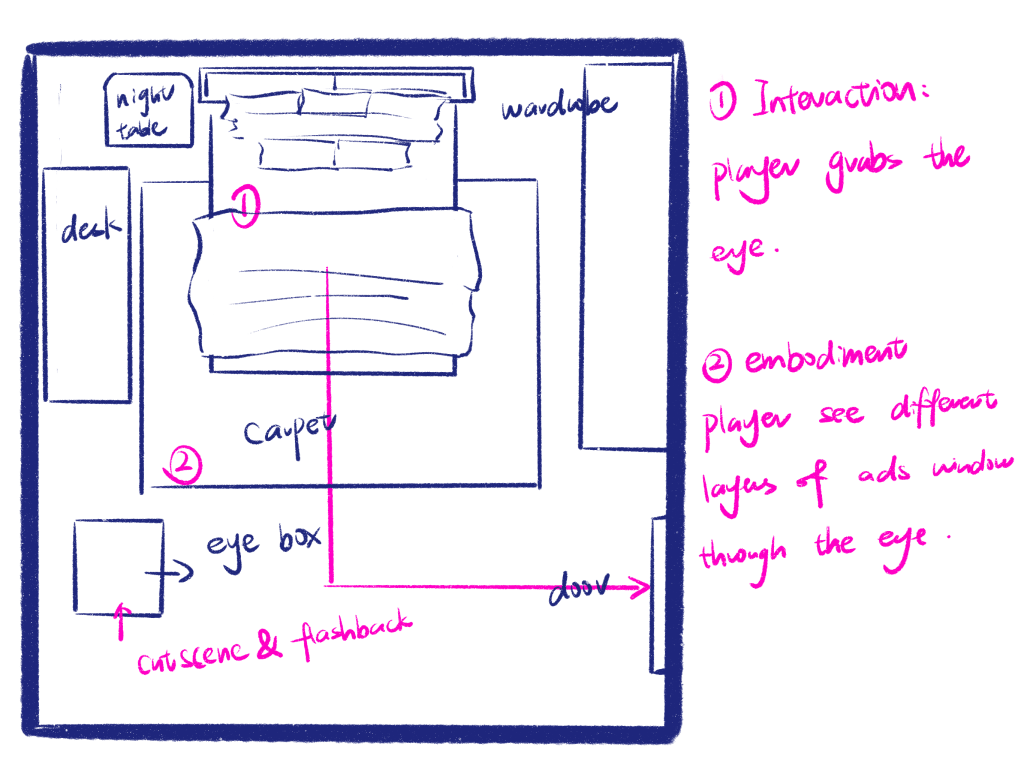 night
table
wardrobe
① Interaction:
player grabs the
eye.
①
desk
② embodiment
player see different
layers of ads window
through the eye.
carpet
②
eye box
door
cutscene & flashback